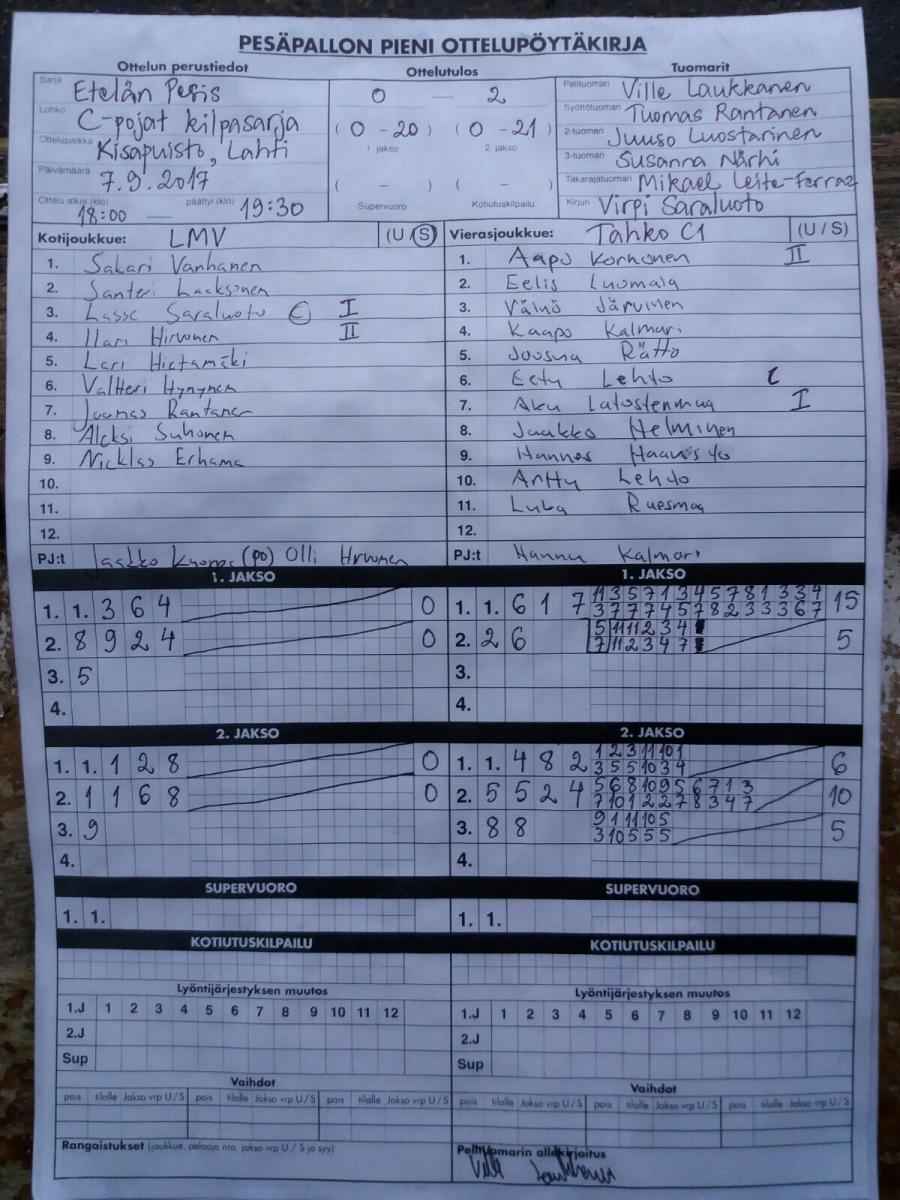 PESÄPALLON PIENI OTTELUPÖYTÄKIRJA
Ottelun perustiedot Ottelutulos Tuomarit
Sarja Etelän Pesis
Lohko C-pojat kilpasarja
Ottelupaikka Kisapuisto, Lahti
Päivämäärä 7.9.2017
Ottelu alkoi (klo) 18:00 — päättyi (klo) 19:30
0 — 2
(0 - 20) (0 - 21)
1. jakso 2. jakso
( - ) ( - )
Supervuoro Kotiutuskilpailu
Pelituomari Ville Laukkanen
Syöttötuomari Tuomas Rantanen
2-tuomari Juuso Luostarinen
3-tuomari Susanna Närhi
Takarajatuomari Mikael Leite-Ferraz
Kirjuri Virpi Saraluoto
Kotijoukkue: LMV (U / S)
1. Sakari Vanhanen
2. Santeri Laaksonen
3. Lasse Saraluoto C I
4. Ilari Hirvonen II
5. Lari Hietamäki
6. Valtteri Hynynen
7. Joonas Rantanen
8. Aleksi Suhonen
9. Nicklas Erhama
10.
11.
12.
PJ:t Jaakko (po) Olli Hirvonen
Vierasjoukkue: Tahko C1 (U / S)
1. Aapo Korhonen II
2. Eelis Luomala
3. Väinö Järvinen
4. Kaapo Kalmari
5. Joosua Rätto
6. Eetu Lehto C
7. Aku Latostenmaa I
8. Jaakko Helminen
9. Hannes Haavisto
10. Arttu Lehto
11. Luka Ruesmaa
12.
PJ:t Hannu Kalmari
1. JAKSO
1. 1. 3 6 4 0
2. 8 9 2 4 0
3. 5
4.
1. JAKSO
1. 1. 6 1 7 15
11 3 5 7 1 3 4 5 7 8 1 3 3 4
3 7 7 7 4 5 7 8 2 3 3 3 6 7
2. 2 6 5
5 11 11 2 3 4
7 11 2 3 4 7
3.
4.
2. JAKSO
1. 1. 1 2 8 0
2. 1 1 6 8 0
3. 9
4.
2. JAKSO
1. 1. 4 8 2 6
1 2 3 11 10 1
3 5 5 10 3 4
2. 5 5 2 4 10
5 6 8 10 9 5 6 7 1 3
7 10 1 2 2 7 8 3 4 7
3. 8 8 5
9 1 11 10 5
3 10 5 5 5
4.
SUPERVUORO
1. 1.
SUPERVUORO
1. 1.
KOTIUTUSKILPAILU
Lyöntijärjestyksen muutos
1.J 1 2 3 4 5 6 7 8 9 10 11 12
2.J
Sup
Vaihdot
pois tilalle Jakso vrp U / S pois tilalle Jakso vrp U / S pois tilalle Jakso vrp U / S
Rangaistukset (joukkue, pelaaja nro, jakso vrp U / S ja syy)
KOTIUTUSKILPAILU
Lyöntijärjestyksen muutos
1.J 1 2 3 4 5 6 7 8 9 10 11 12
2.J
Sup
Vaihdot
pois tilalle Jakso vrp U / S pois tilalle Jakso vrp U / S pois tilalle Jakso vrp U / S
Pelituomarin allekirjoitus
Ville Laukkanen